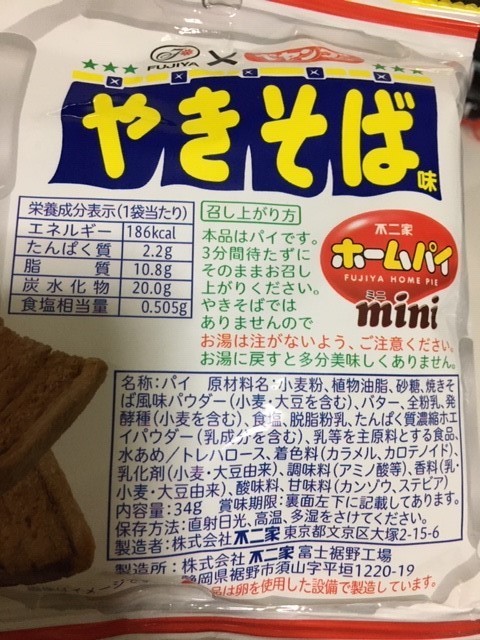 FUJIYA × ペヤング
やきそば味
栄養成分表示(1袋当たり)
エネルギー 186kcal
たんぱく質 2.2g
脂質 10.8g
炭水化物 20.0g
食塩相当量 0.505g
召し上がり方
本品はパイです。
3分間待たずに
そのままお召し
上がりください。
やきそばでは
ありませんので
お湯は注がないよう、ご注意ください。
お湯に戻すと多分美味しくありません。
不二家
ホームパイ
FUJIYA HOME PIE
ミニ
mini
名称:パイ 原材料名:小麦粉、植物油脂、砂糖、焼きそ
ば風味パウダー(小麦・大豆を含む)、バター、全粉乳、発
酵種(小麦を含む)、食塩、脱脂粉乳、たんぱく質濃縮ホエ
イパウダー(乳成分を含む)、乳等を主原料とする食品、
水あめ/トレハロース、着色料(カラメル、カロテノイド)、
乳化剤(小麦・大豆由来)、調味料(アミノ酸等)、香料(乳・
小麦・大豆由来)、酸味料、甘味料(カンゾウ、ステビア)
内容量:34g 賞味期限:裏面左下に記載してあります。
保存方法:直射日光、高温、多湿をさけてください。
製造者:株式会社不二家 東京都文京区大塚2-15-6
製造所:株式会社 不二家 富士裾野工場
静岡県裾野市須山字平垣1220-19
品は卵を使用した設備で製造しています。
イメージ